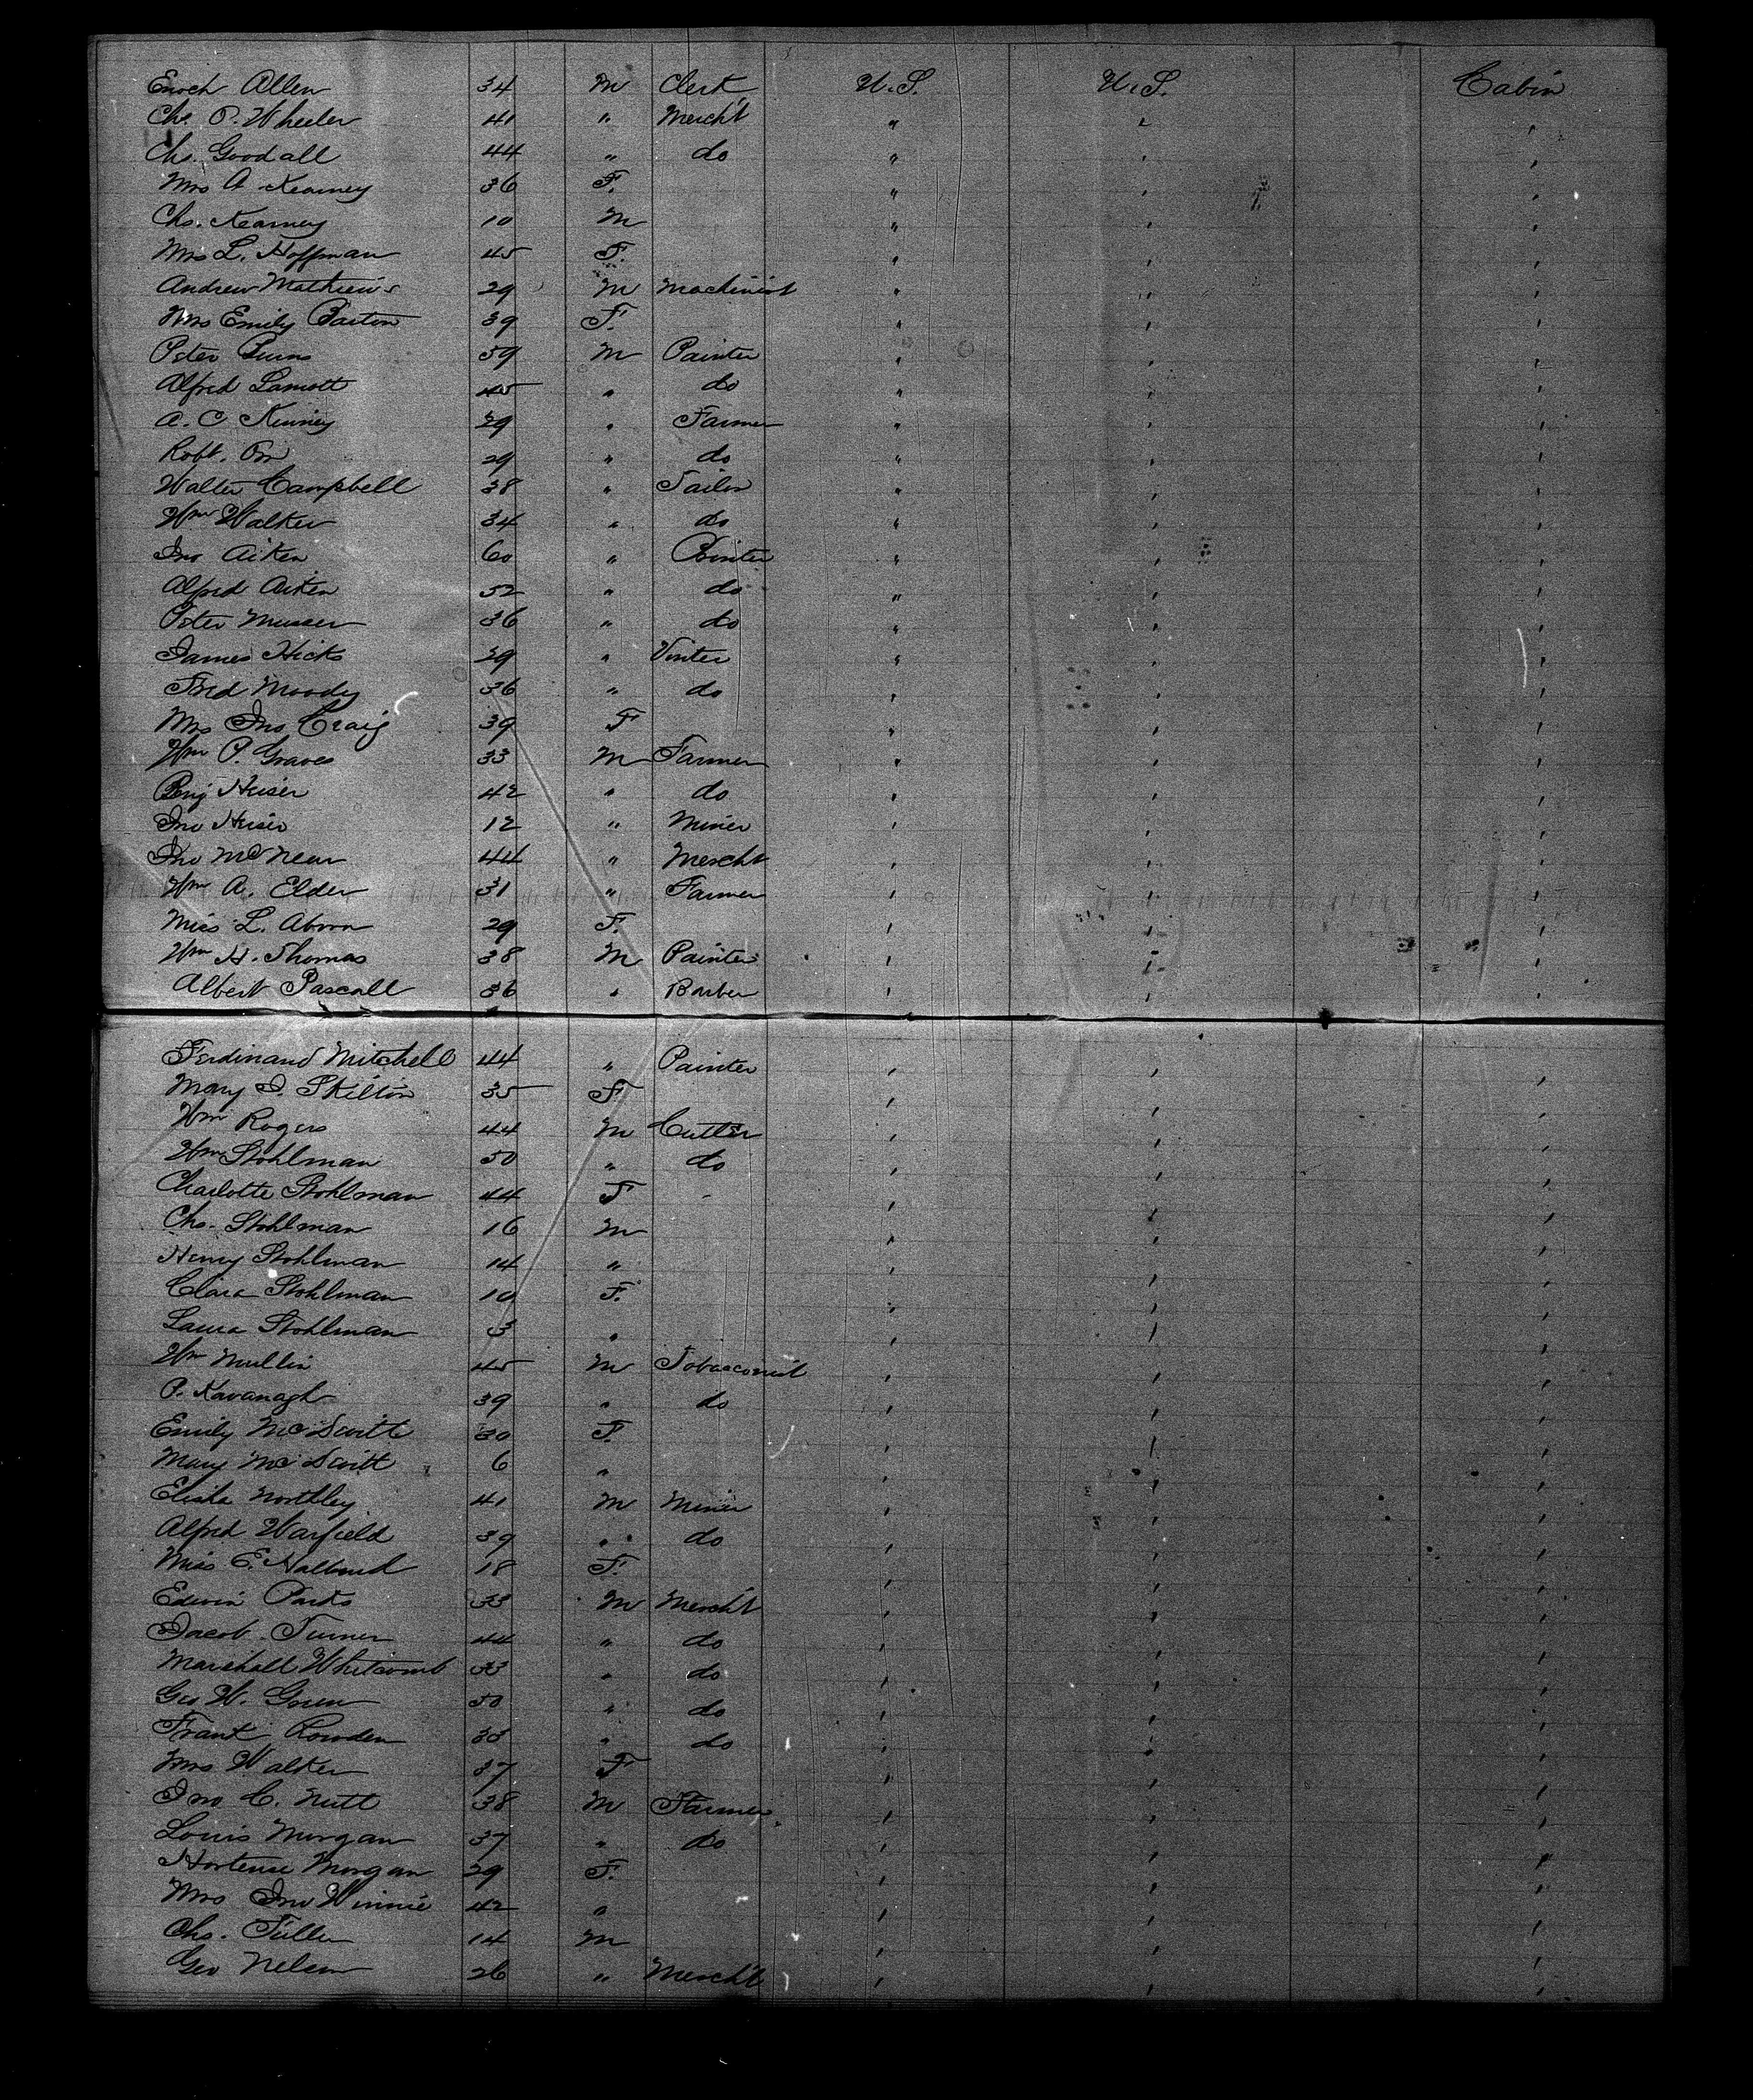 Enoch Allen 34 M Clerk U.S. U.S. Cabin
Chs. P. Wheeler 41 " Mercht " " "
Chs. Goodall 44 " do " " "
Mrs A Kearney 36 F. " " "
Chs. Kearney 10 M " " "
Mrs L. Hoffman 45 F. " " "
Andrew Mathews 29 M Machinist " " "
Mrs Emily Barton 39 F. " " "
Peter Burns 59 M Painter " " "
Alfred Lamott 45 " do " " "
A. C Kinney 29 " Farmer " " "
Robt. Orr 29 " do " " "
Walter Campbell 38 " Tailor " " "
Wm Walker 34 " do " " "
Jno Aiken 60 " Printer " " "
Alfred Aiken 52 " do " " "
Peter Musser 36 " do " " "
James Hicks 29 " Vinter " " "
Fred Moody 36 " do " " "
Mrs Jno Craig 39 F " " "
Wm P. Graves 33 M Farmer " " "
Benj Heiser 42 " do " " "
Jno Heiser 12 " Miner " " "
Jno McNear 44 " Mercht " " "
Wm A. Elder 31 " Farmer " " "
Miss L. 29 F. " " "
Wm H. Thomas 38 M Painter " " "
Albert Pascall 36 " Barber " " "
Ferdinand Mitchell 44 " Painter " " "
Mary J. Skilton 35 F " " "
Wm Rogers 44 M Cutter " " "
Wm Stohlman 50 " do " " "
Charlotte Stohlman 44 F " " "
Chs. Stohlman 16 M " " "
Henry Stohlman 14 " " " "
Clara Stohlman 10 F. " " "
Laura Stohlman 3 " " " "
Wm Mullin 45 M Tobacconist " " "
P. Kavanagh 39 " do " " "
Emily McDavitt 30 F. " " "
Mary McDavitt 6 " " " "
Elisha Northley 41 M Miner " " "
Alfred Warfield 39 " do " " "
Miss E. 18 F. " " "
Edwin Parks 33 M Mercht " " "
Jacob Turner 44 " do " " "
Marshall Whitcomb 33 " do " " "
Geo W. Green 50 " do " " "
Frank Rowden 33 " do " " "
Mrs Walker 37 F " " "
Jno C. Nutt 38 M Farmer " " "
Louis Morgan 37 " do " " "
Hortense Morgan 29 F. " " "
Mrs Jno Winnie 42 " " " "
Chs. Fuller 14 M " " "
Geo Nelson 26 " Mercht " " "